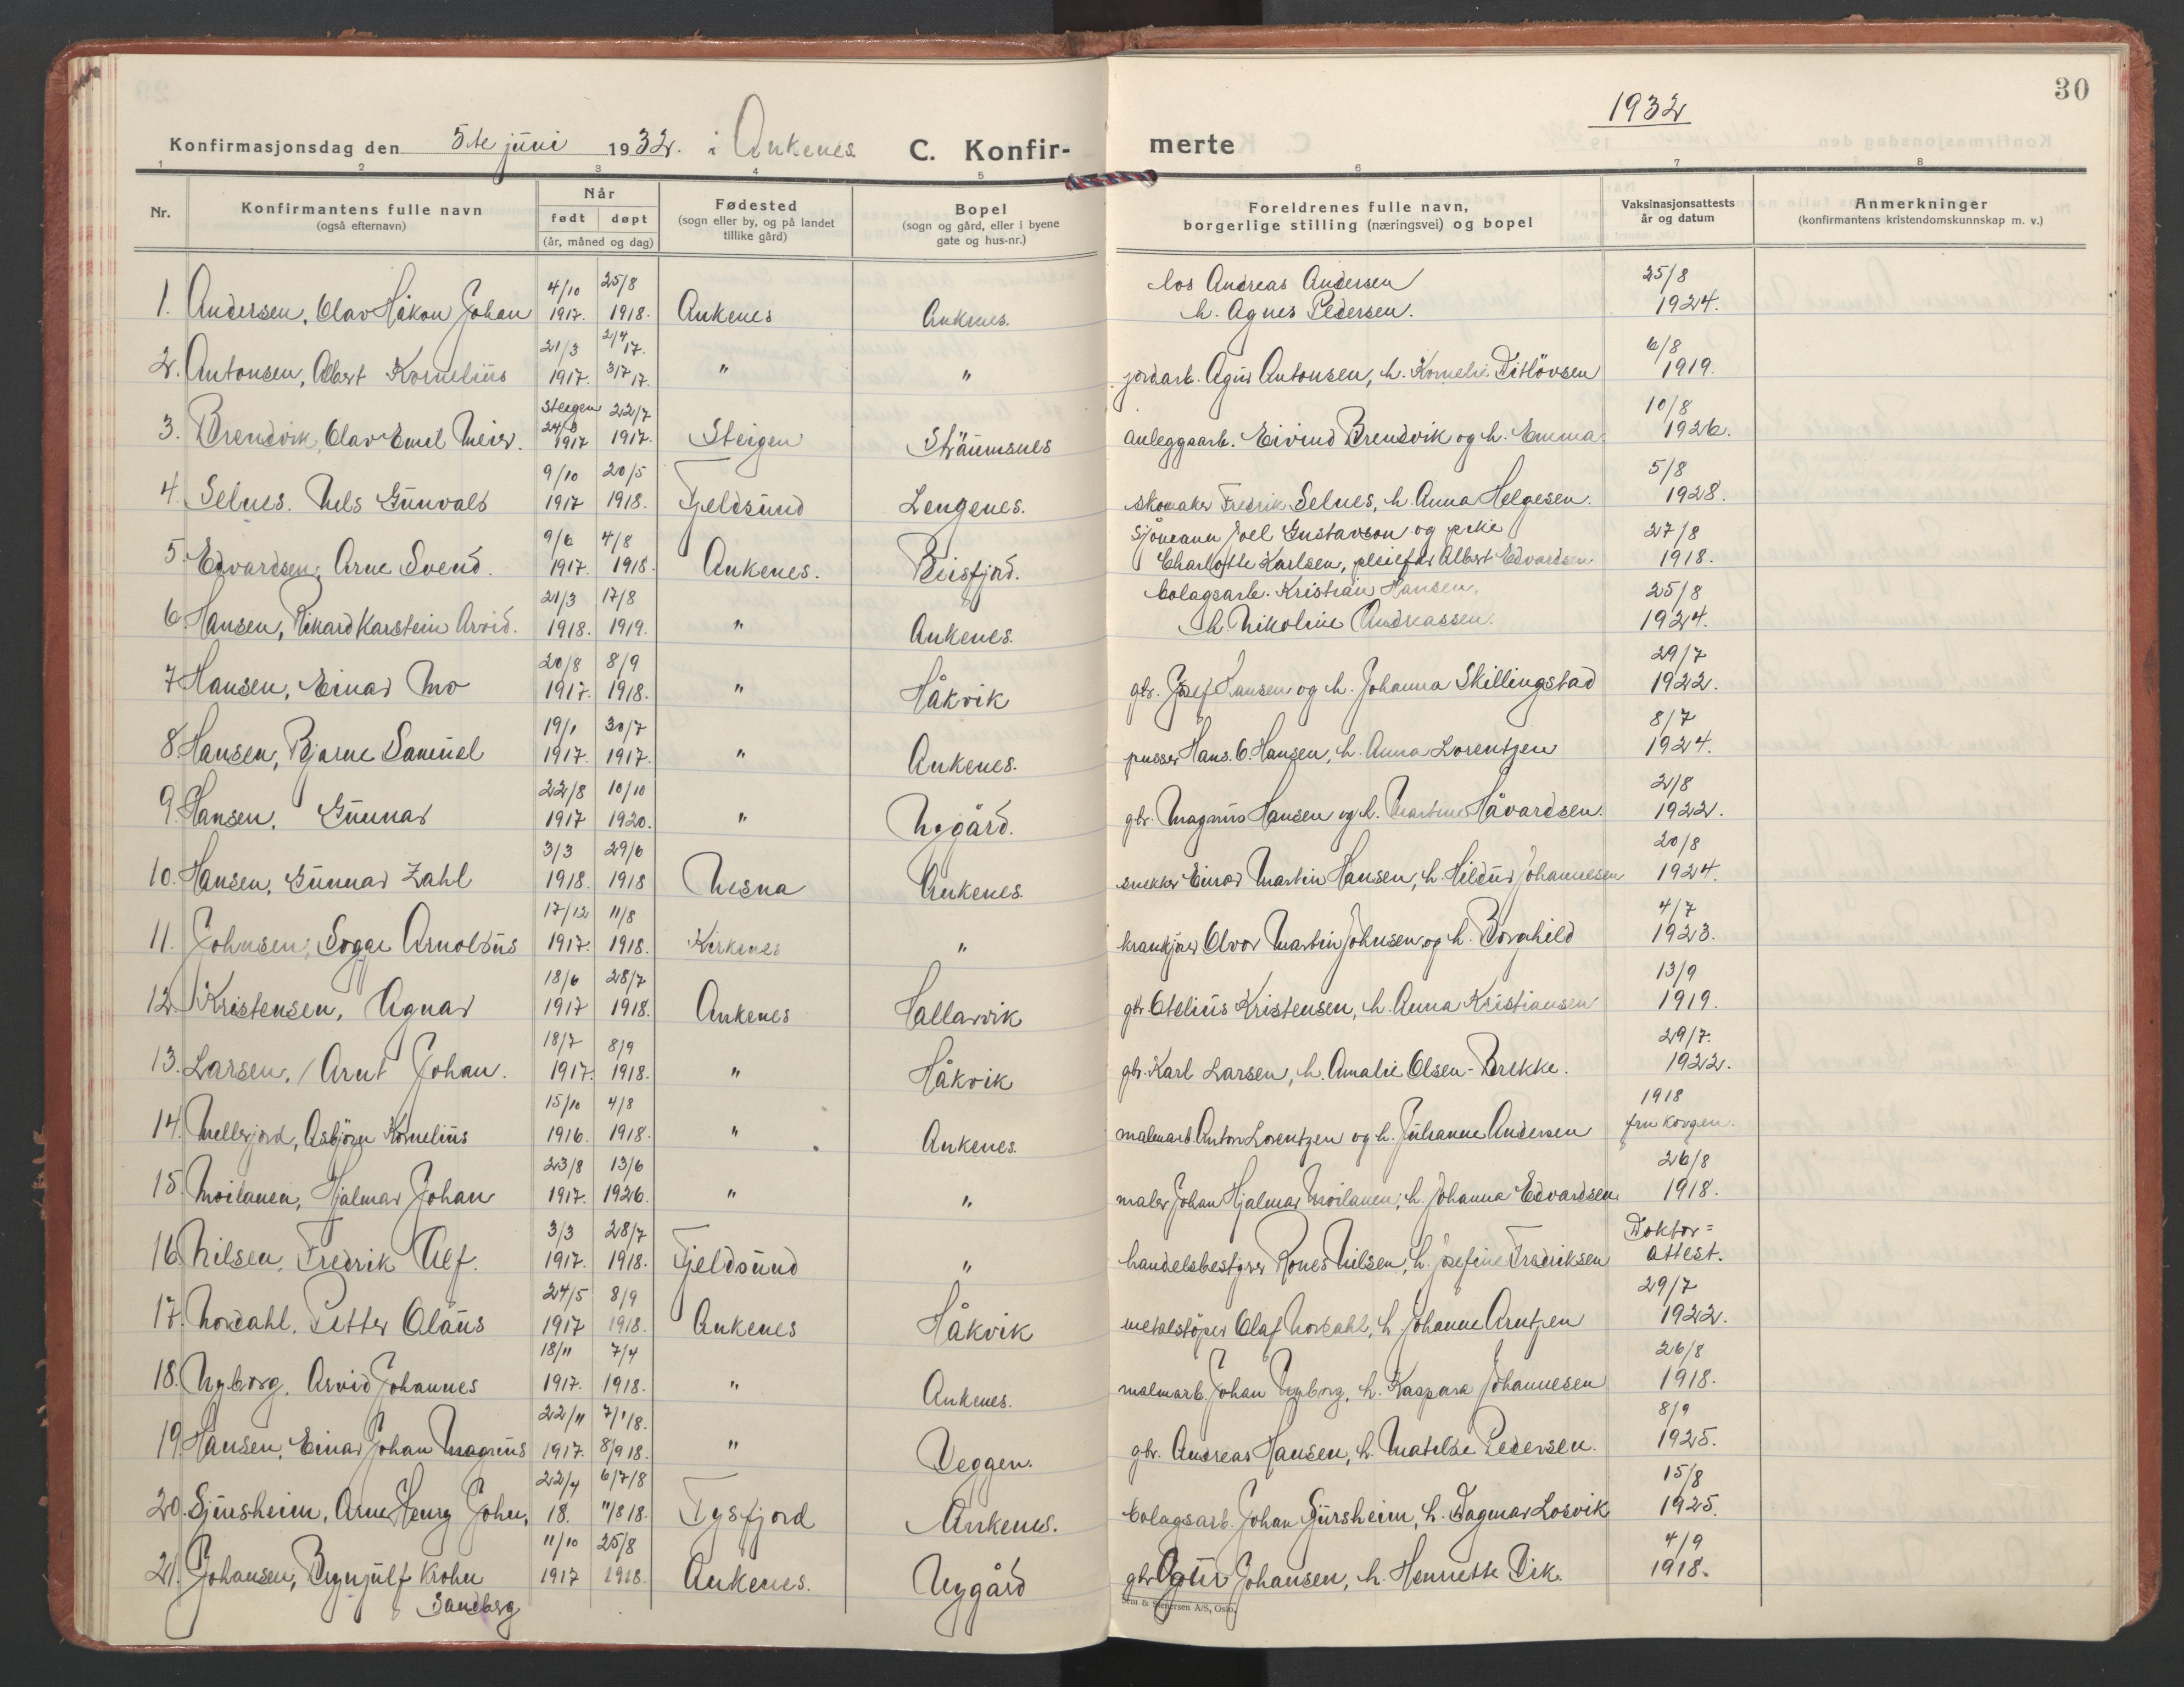 30
1932
Konfirmasjonsdag den 5te juni 1932. i Ankenes C. Konfir- merte
1 2 3 4 5 6 7 8
Nr. Konfirmantens fulle navn (også efternavn) Når født døpt (år, måned og dag) Fødested (sogn eller by, og på landet tillike gård) Bopel (sogn og gård, eller i byene gate og hus-nr.) Foreldrenes fulle navn, borgerlige stilling (næringsvei) og bopel Vaksinasjonsattests år og datum Anmerkninger (konfirmantens kristendomskunnskap m. v.)
1. Andersen, Olav Håkon Johan 4/10 1917. 25/8 1918. Ankenes Ankenes. los Andreas Andersen h. Agnes Pedersen. 25/8 1924.
2. Antonsen, Albert Kornelius 21/3 1917. 2/4 17. 3/7 17. " " jordarb. Agur Antonsen, h. Kornelie Ditlövsen 6/8 1919.
3. Brendvik, Olav Emil Meier. Steigen 24/3 1917 22/7 1917. Steigen Stråumsnes anleggsarb. Eivind Brendvik og h. Emma. 10/8 1926.
4. Selnes. Nils Gunvald 9/10 1917 20/5 1918. Fjeldsund Lengenes. skomaker Fredrik Selnes, h. Anna Helgesen. 5/8 1928.
5. Edvardsen, Arne Svend. 9/6 1917. 4/8 1918. Ankenes. Beisfjord. sjömann Joel Gustavson og pike Charlotte Karlsen, pleiefar Albert Edvardsen 27/8 1918.
6. Hansen, Rikard Karstein Arvid. 21/3 1918. 17/8 1919. " Ankenes. bolagsarb. Kristian Hansen, h. Nikoline Andreassen. 25/8 1924.
7. Hansen, Einar Mo 20/8 1917. 8/9 1918. " Håkvik gbr. Josef Hansen og h. Johanna Skillingstad 29/7 1922.
8. Hansen, Bjarne Samuel 19/1 1917. 30/7 1917. " Ankenes. pusser Hans O. Hansen, h. Anna Lorentzen 8/7 1924.
9. Hansen, Gunnar 22/8 1917 10/10 1920. " Nygård. gbr. Magnus Hansen og h. Martine Håvardsen. 2/8 1922.
10. Hansen, Gunnar Zahl 3/3 1918. 29/6 1918 Nesna Ankenes. snekker Einar Martin Hansen, h. Hildur Johannesen 20/8 1924.
11. Johnsen, Sogge Arnoldus 17/12 1917. 11/8 1918. Kirkenes " krankjörer Alvor Martin Johnsen og h. Borghild 4/7 1923.
12. Kristensen, Agnar 18/6 1917 28/7 1918. Ankenes Hallarvik gbr. Otelius Kristensen, h. Anna Kristiansen 13/9 1919.
13. Larsen, Arnt Johan. 18/7 1917. 8/9 1918. " Håkvik gbr. Karl Larsen, h. Amalie Olsen-Brekke. 29/7. 1922.
14. Mellerjord, Asbjörn Kornelius 15/10 1916. 4/8 1918. " Ankenes. malmarb. Anton Lorentzen og h. Julianne Andersen 1918 fra Korgen.
15. Moilanen, Hjalmar Johan 23/8 1917. 13/6 1926. " " maler Johan Hjalmar Moilanen, h. Johanna Edvardsen. 26/8 1918.
16. Nilsen, Fredrik Alf. 3/3 1917. 28/7 1918. Fjeldsund " handelsbestyrer Rones Nilsen, h. Josefine Fredriksen Doktor= attest.
17. Nordahl, Petter Olaus 24/5 1917 8/9 1918. Ankenes Håkvik metalstöper Olaf Nordahl, h. Johanne Arntzen 29/7 1922.
18. Nyborg, Arvid Johannes 18/11 1917. 7/4 1918. " Ankenes. malmarb. Johan Nyborg, h. Kaspara Johannesen 26/8 1918.
19. Hansen, Einar Johan Magnus 22/11 1917. 7/1 18. 8/9 18. " Veggen. gbr. Andreas Hansen, h. Matilde Pedersen. 8/9 1925.
20. Sjursheim, Arne Henry John, 22/4 18. 6/7/8 11/8 18. Tysfjord Ankenes. bolagsarb. Johan Sjursheim, h. Dagmar Losvik 15/8 1925.
21. Johansen, Brynjulf Krohn Sandberg 11/10 1917 25/8 1918. Ankenes. Nygård gbr. Agur Johansen, h. Henriette Vik. 4/9 1918.
Sem & Stenersen A/S, Oslo.